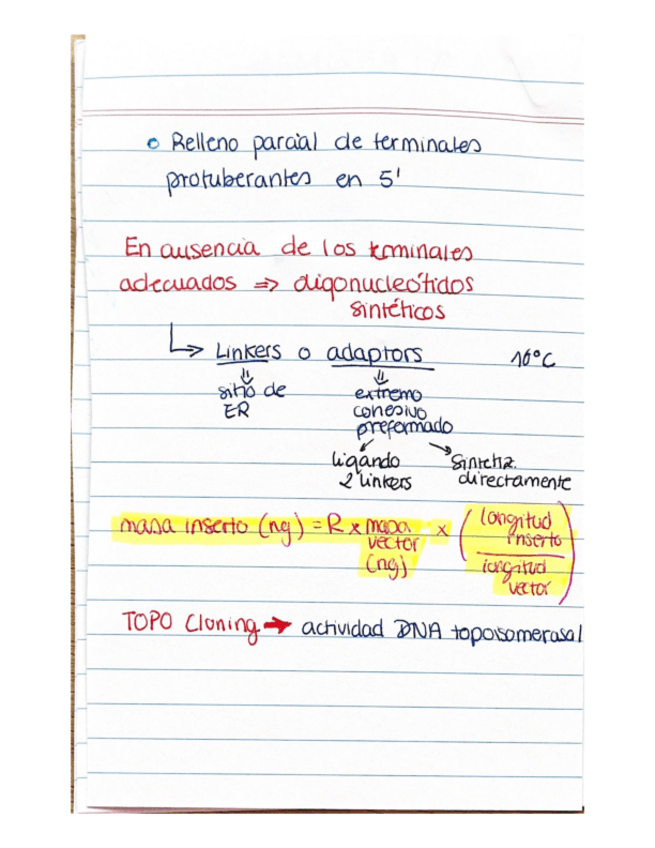 Relleno parcial de terminales
protuberantes en 5'
En ausencia de los terminales
adecuados => oligonucleótidos
sintéticos
Linkers o adaptors 16°C
sitio de extremo
ER cohesivo
preformado
ligando Sintetiz.
2 linkers directamente
masa inserto (ng) = R x masa vector (ng) x (longitud inserto / longitud vector)
TOPO Cloning → actividad DNA topoisomerasa I